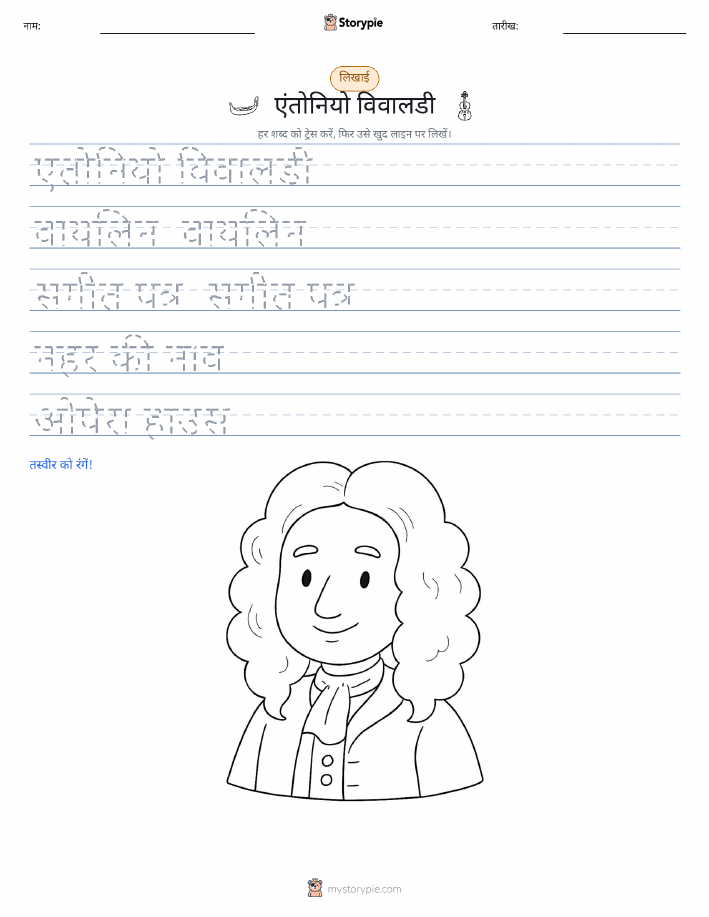 नाम:
Storypie
तारीख:
लिखाई
एंतोनियो विवालडी
हर शब्द को ट्रेस करें, फिर उसे खुद लाइन पर लिखें।
एतोनियो विवालडी
वायलिन वायलिन
सगीत पत्र सगीत पत्र
नहर की नाव
ओपेरा हाउस
तस्वीर को रंगें!
mystorypie.com